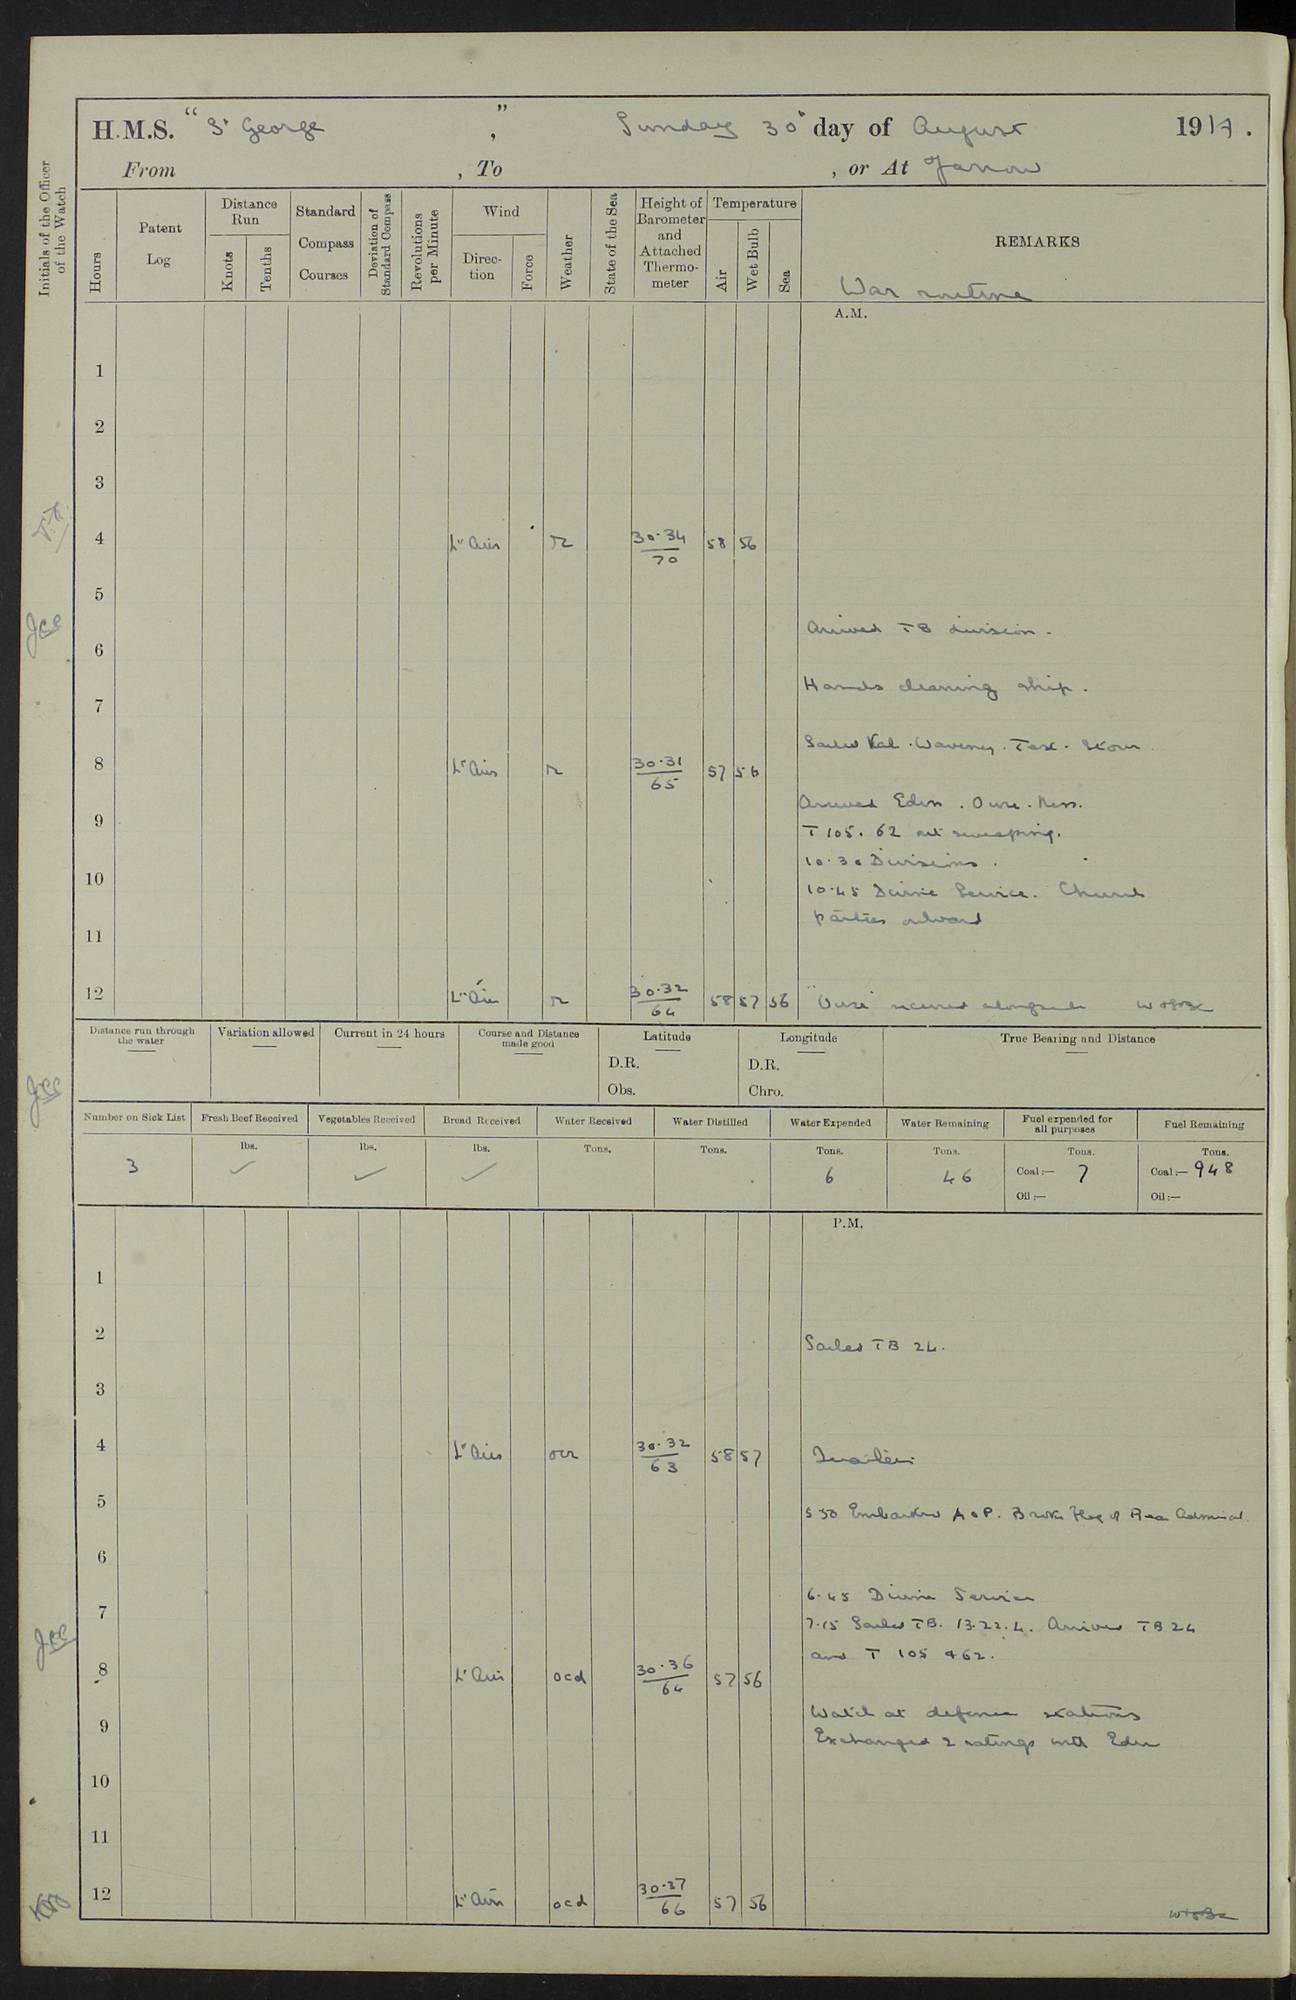 H.M.S. “St George”, Sunday 30th day of August 1914.
From , To , or At Jarrow
Initials of the Officer of the Watch
Hours
Patent Log
Distance Run
Knots
Tenths
Standard Compass Courses
Deviation of Standard Compass
Revolutions per Minute
Wind
Direction
Force
Weather
State of the Sea
Height of Barometer and Attached Thermometer
Temperature
Air
Wet Bulb
Sea
REMARKS
War routine
A.M.
1
2
3
4 Lt Airs r 30.34/70 58 56
5
Arrived TB division.
6
Hands cleaning ship.
7
Sailed Kal. Waveney. Test. Stour
8 Lt Airs r 30.31/65 57 56
Arrived Eden. Ouse. Ness.
9
T 105. 62 out sweeping.
10.30 Divisions.
10
10.45 Divine Service. Church
parties onboard
11
12 Lt Air r 30.32/64 58 57 56 "Ouse" secured alongside
Distance run through the water
Variation allowed
Current in 24 hours
Course and Distance made good
Latitude
D.R.
Obs.
Longitude
D.R.
Chro.
True Bearing and Distance
Number on Sick List
Fresh Beef Received
Vegetables Received
Bread Received
Water Received
Water Distilled
Water Expended
Water Remaining
Fuel expended for all purposes
Fuel Remaining
lbs. lbs. lbs. Tons. Tons. Tons. Tons. Tons. Tons.
3 ✓ ✓ ✓ 6 46 Coal:— 7 Coal:— 948
Oil:— Oil:—
P.M.
1
2
Sailed TB 24.
3
4 Lt Airs ocr 30.32/63 58 57 Quarters
5
5 50 Embarked A o P. Broke Flag of Rear Admiral.
6
6.45 Divine Service
7
7.15 Sailed TB. 13.22.4. Arrived TB 24
and T 105 & 62.
8 Lt Airs ocd 30.36/64 57 56
Watch at defence stations
9
Exchanged 2 ratings with Eden
10
11
12 Lt Airs ocd 30.37/66 57 56